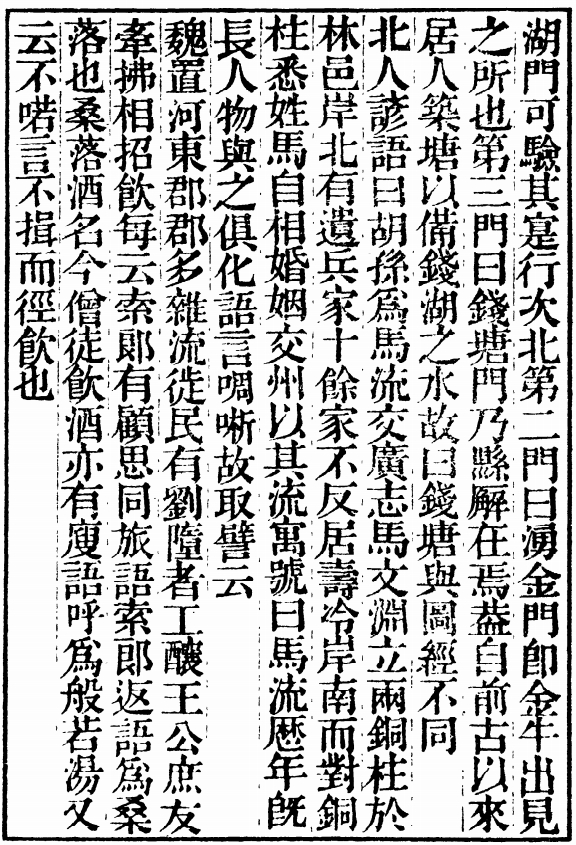 湖門可驗其寔行次北第二門曰湧金門卽金牛出見
之所也第三門曰錢塘門乃縣解在焉葢自前古以來
居人築塘以備錢湖之水故曰錢塘與圖經不同
北人諺語曰胡孫爲馬流交廣志馬文淵立兩銅柱於
林邑岸北有遺兵家十餘家不反居壽冷岸南而對銅
柱悉姓馬自相婚姻交州以其流寓號曰馬流歷年旣
長人物與之俱化語言啁哳故取譬云
魏置河東郡郡多雜流徙民有劉墮者工釀王公庶友
牽拂相招飲每云索郞有顧思同旅語索郞返語爲桑
落也桑落酒名今僧徒飲酒亦有廋語呼爲般若湯又
云不喏言不揖而徑飮也